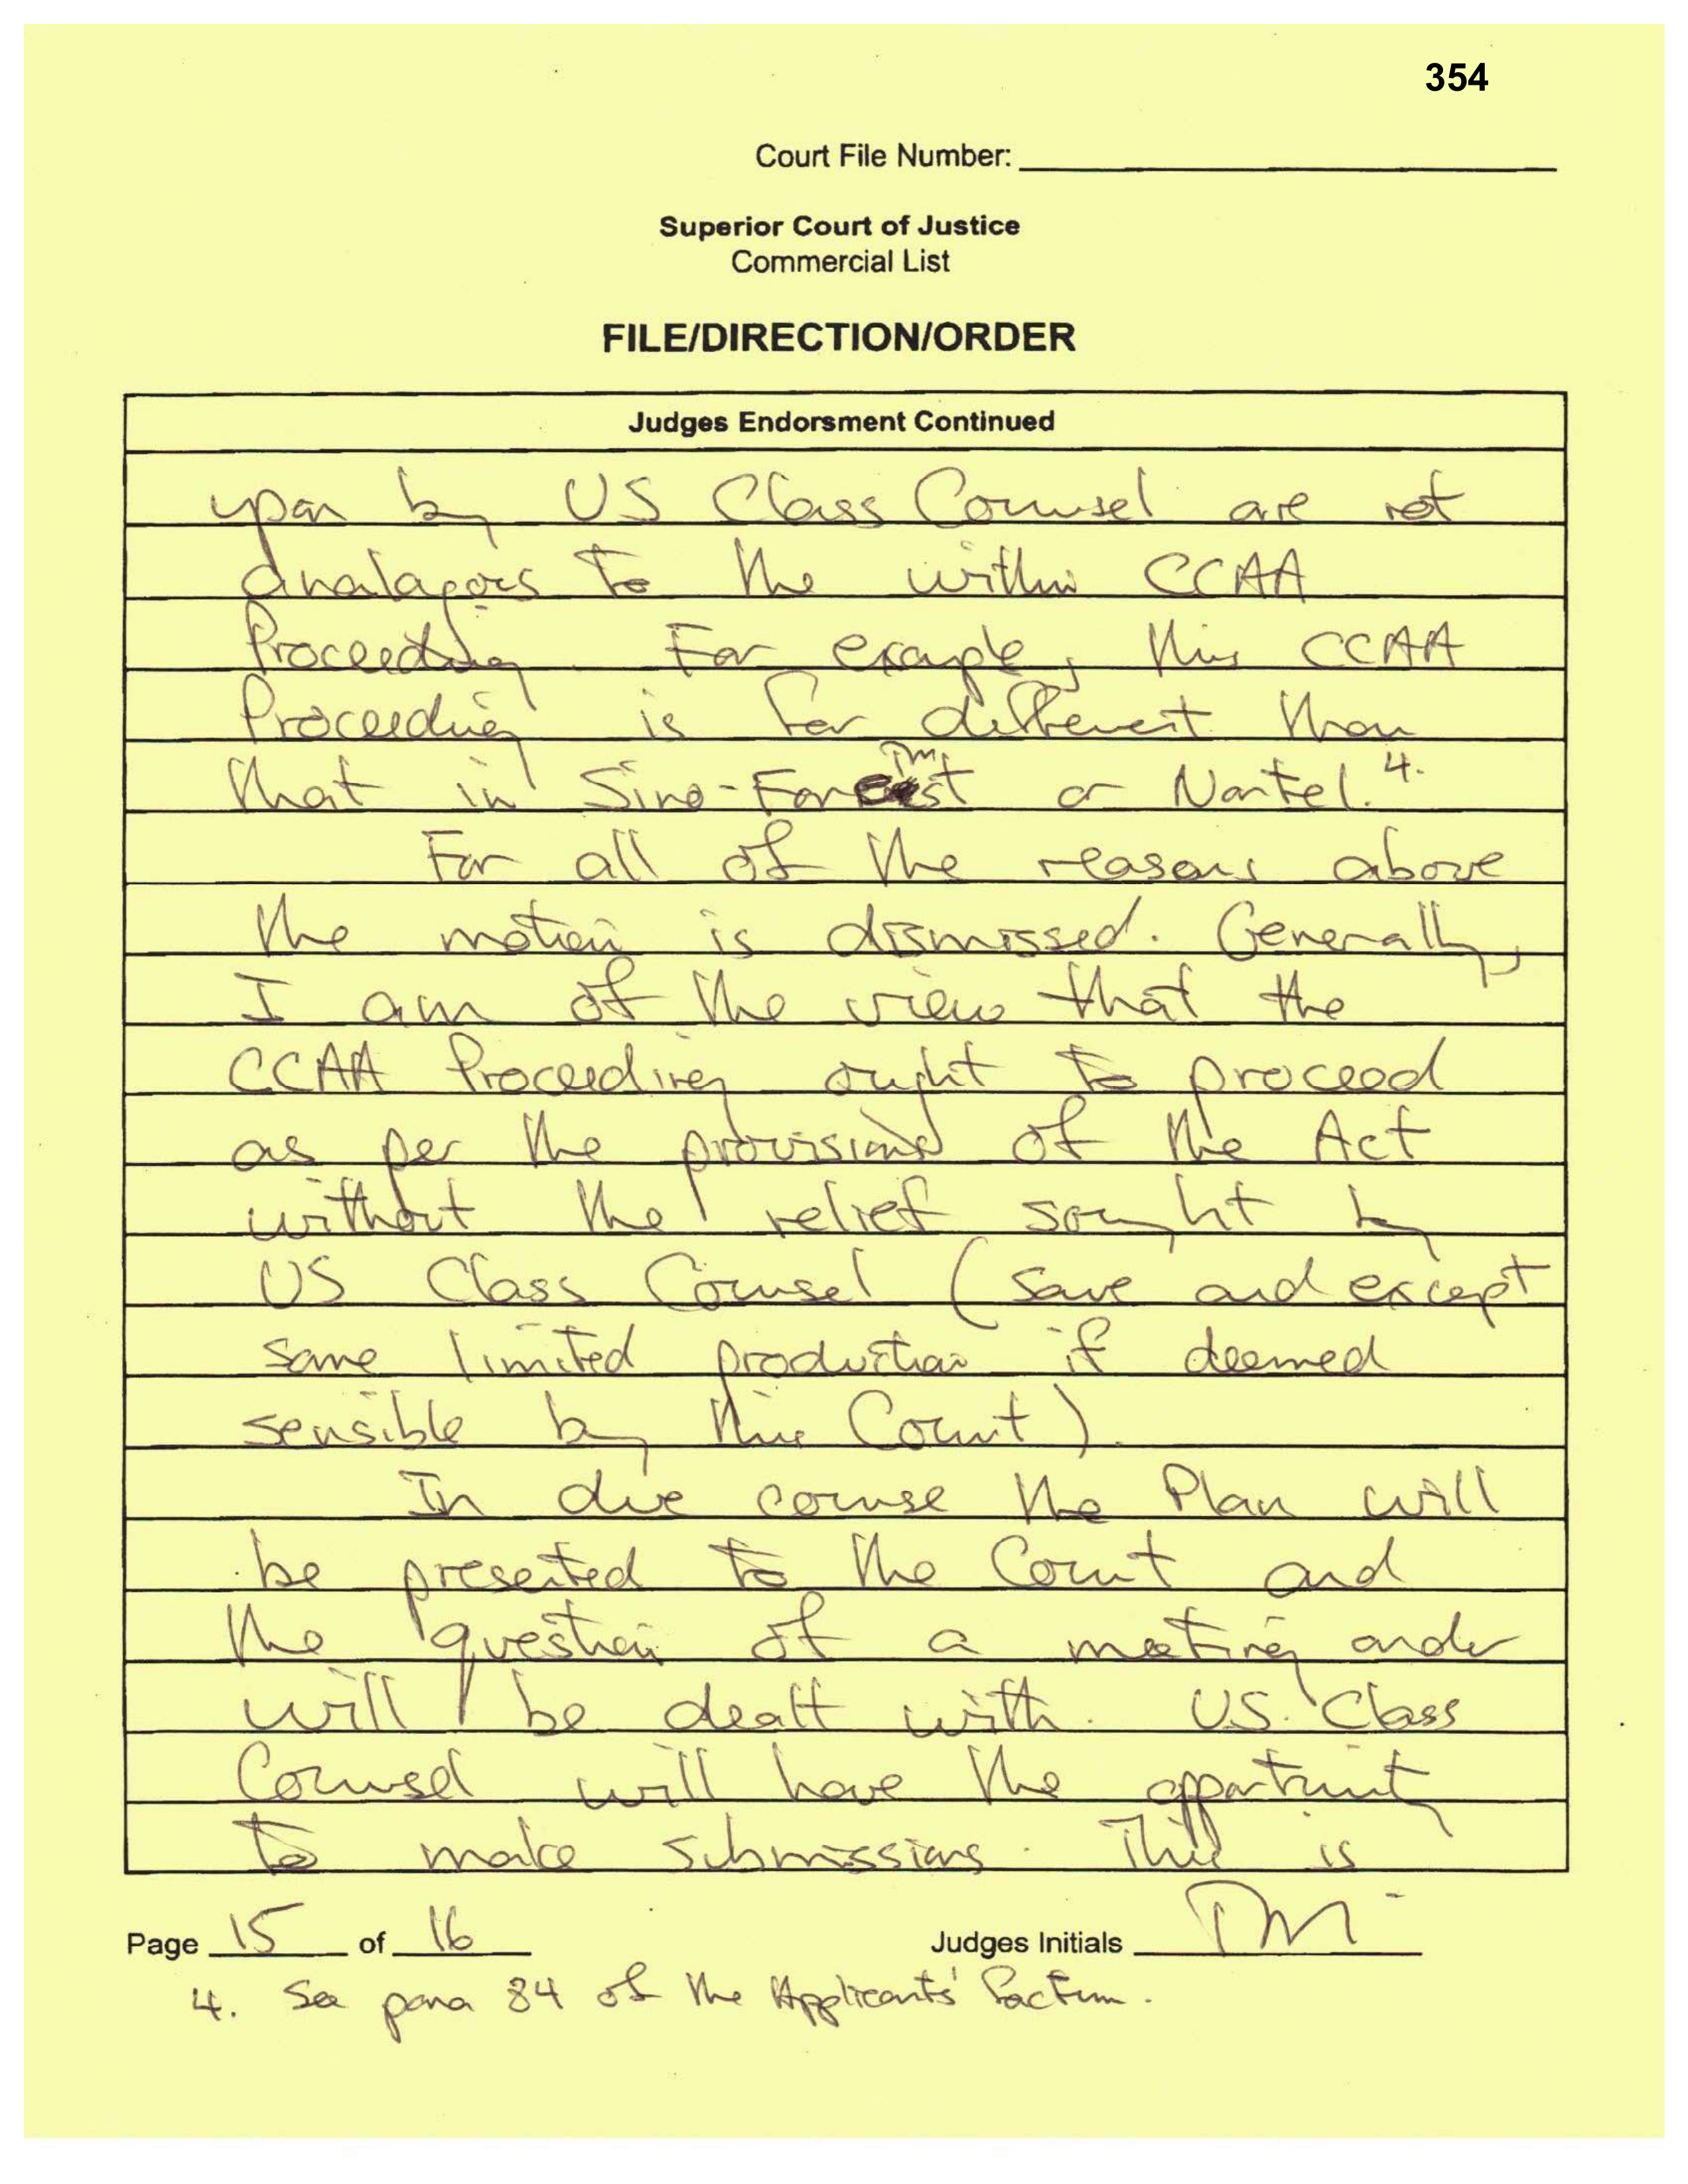 354
Court File Number:
Superior Court of Justice
Commercial List
FILE/DIRECTION/ORDER
Judges Endorsment Continued
upon by US Class Counsel are not
analagous to the within CCAA
Proceeding. For example, this CCAA
Proceeding is far different than
that in Sino-Forest or Nortel. 4.
For all of the reasons above
the motion is dismissed. Generally,
I am of the view that the
CCAA Proceeding ought to proceed
as per the provisions of the Act
without the relief sought by
US Class Counsel (save and except
some limited production if deemed
sensible by this Court).
In due course the Plan will
be presented to the Court and
the question of a meeting order
will be dealt with. US Class
Counsel will have the opportunity
to make submissions. This is
Page 15 of 16 Judges Initials TM
4. See para 84 of the Applicants' factum.